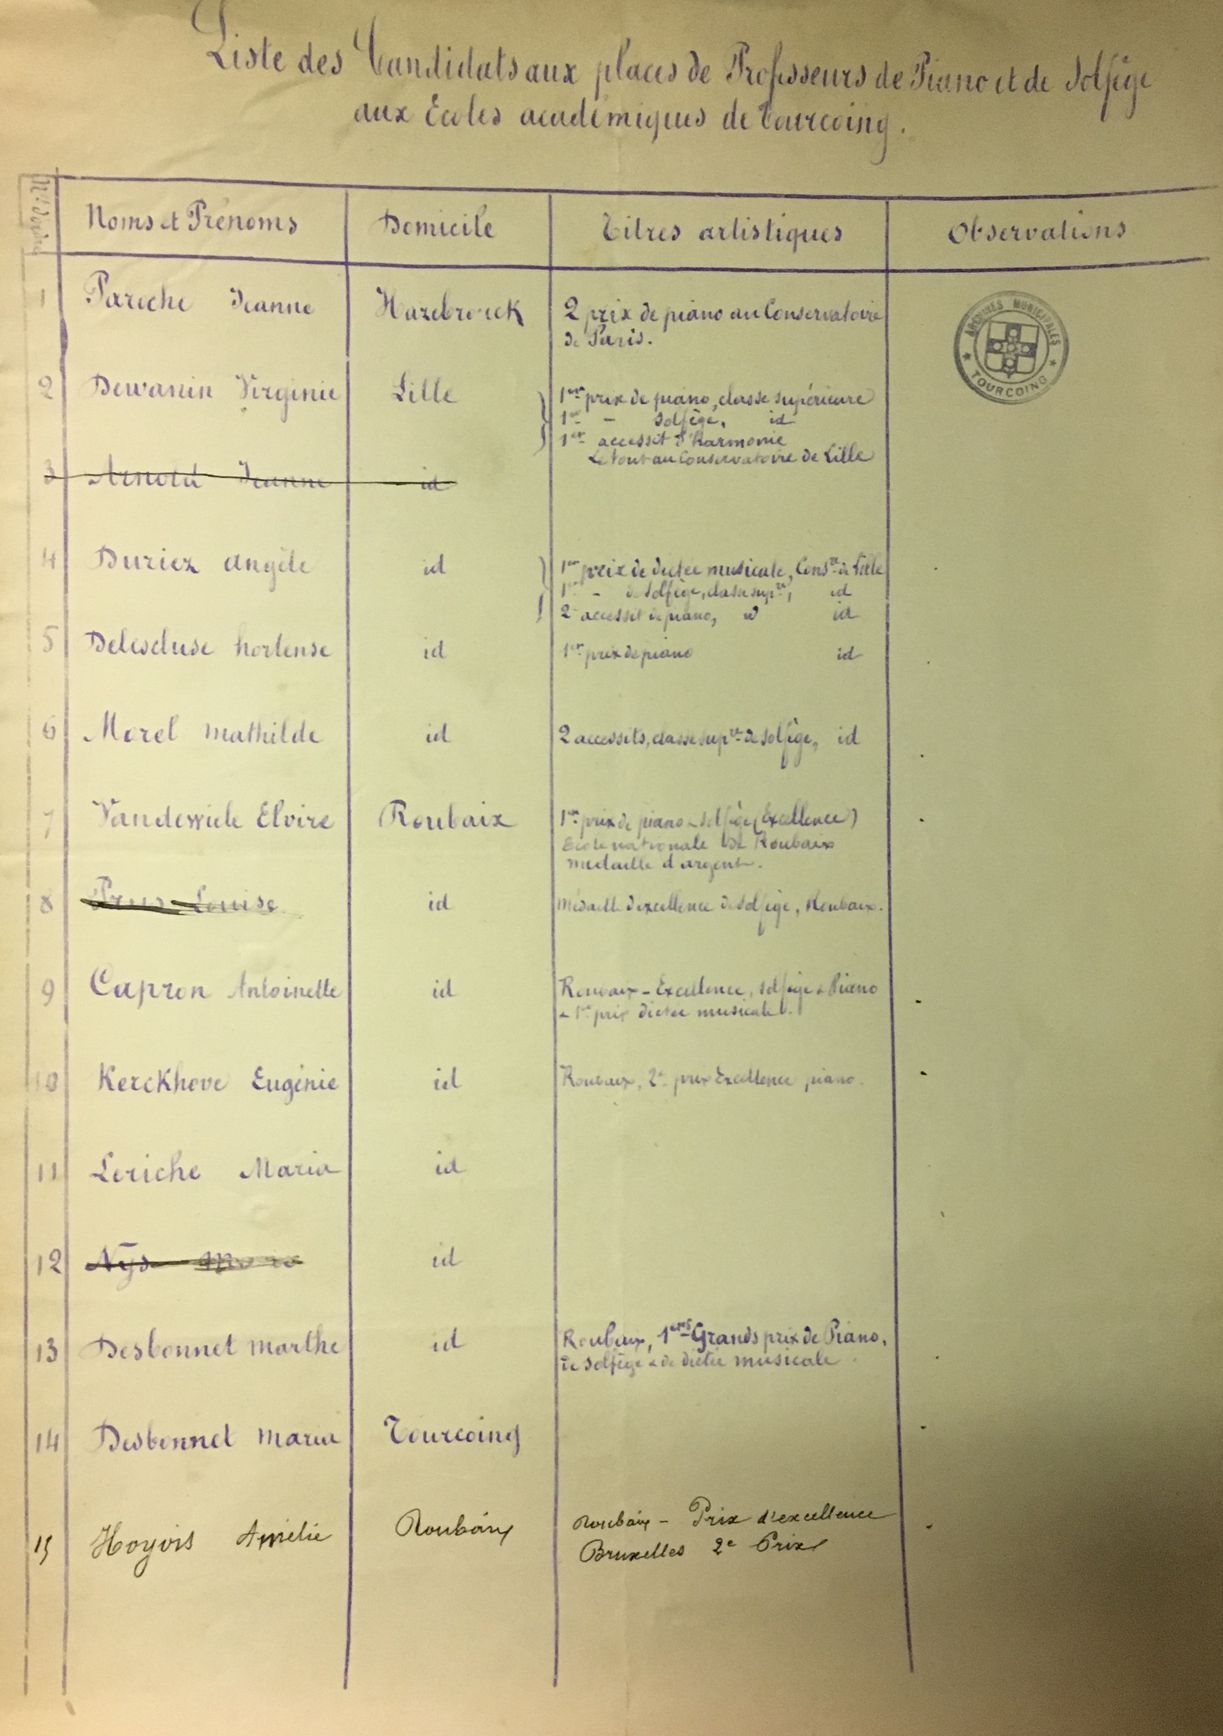 Liste des Candidats aux places de Professeurs de Piano et de Solfège
aux Ecoles académiques de Tourcoing.
Noms et Prénoms Domicile Titres artistiques Observations
1 Jeanne Hazebrouck 2 prix de piano au Conservatoire
de Paris.
ARCHIVES MUNICIPALES
TOURCOING
2 Dewanin Virginie Lille 1er prix de piano, classe supérieure
1er - solfège, id
1er accessit d'harmonie
Le tout au Conservatoire de Lille
3 Arnold Jeanne id
4 Duriez Angèle id 1er prix de dictée musicale, Consre de Lille
1er - de solfège, classe supre, id
2e accessit de piano, id id
5 Delescluse hortense id 1er prix de piano id
6 Morel mathilde id 2 accessits, classe supre de solfège, id
7 Elvire Roubaix 1er prix de piano & solfège (Excellence)
Ecole nationale de Roubaix
médaille d'argent.
8 Prus Louise id Médaille d'excellence de solfège, Roubaix.
9 Capron Antoinette id Roubaix - Excellence, solfège & Piano
& 1er prix dictée musicale.
10 Kerckhove Eugénie id Roubaix, 2e prix Excellence piano.
11 Leriche Maria id
12 Nys id
13 Desbonnet marthe id Roubaix, 1ers Grands prix de Piano,
de solfège & de dictée musicale.
14 Desbonnet maria Tourcoing
15 Hoyois Amélie Roubaix Roubaix - Prix d'excellence
Bruxelles 2e Prix